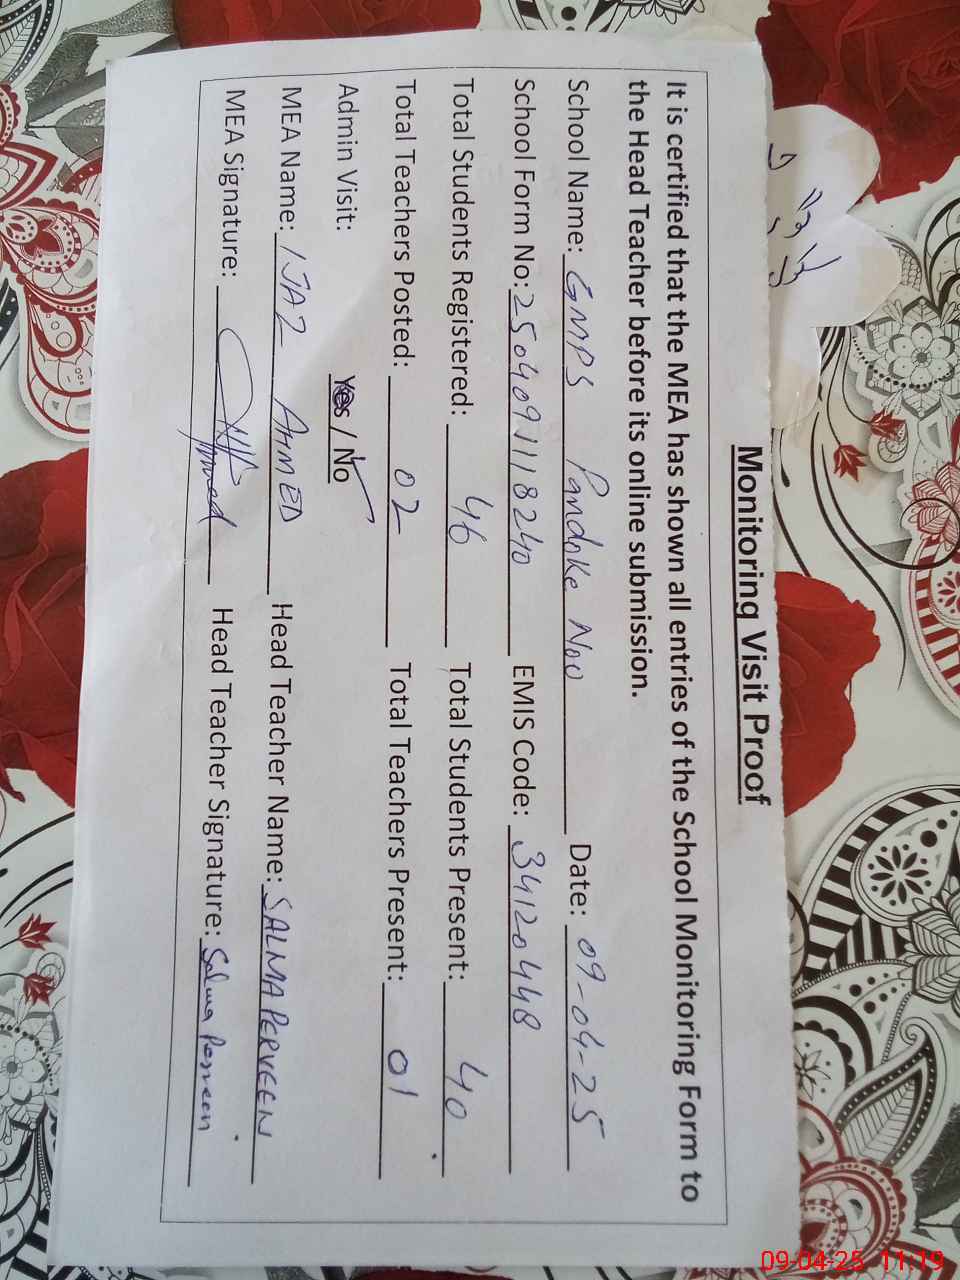 Monitoring Visit Proof
It is certified that the MEA has shown all entries of the School Monitoring Form to
the Head Teacher before its online submission.
School Name: GMPS Pandoke Noo Date: 09-04-25
School Form No: 2504091118240 EMIS Code: 34120448
Total Students Registered: 46 Total Students Present: 40
Total Teachers Posted: 02 Total Teachers Present: 01
Admin Visit: Yes / No
MEA Name: IJAZ AHMED Head Teacher Name: SALMA PERVEEN
MEA Signature: Head Teacher Signature: Salma Perveen
09-04-25 11:19